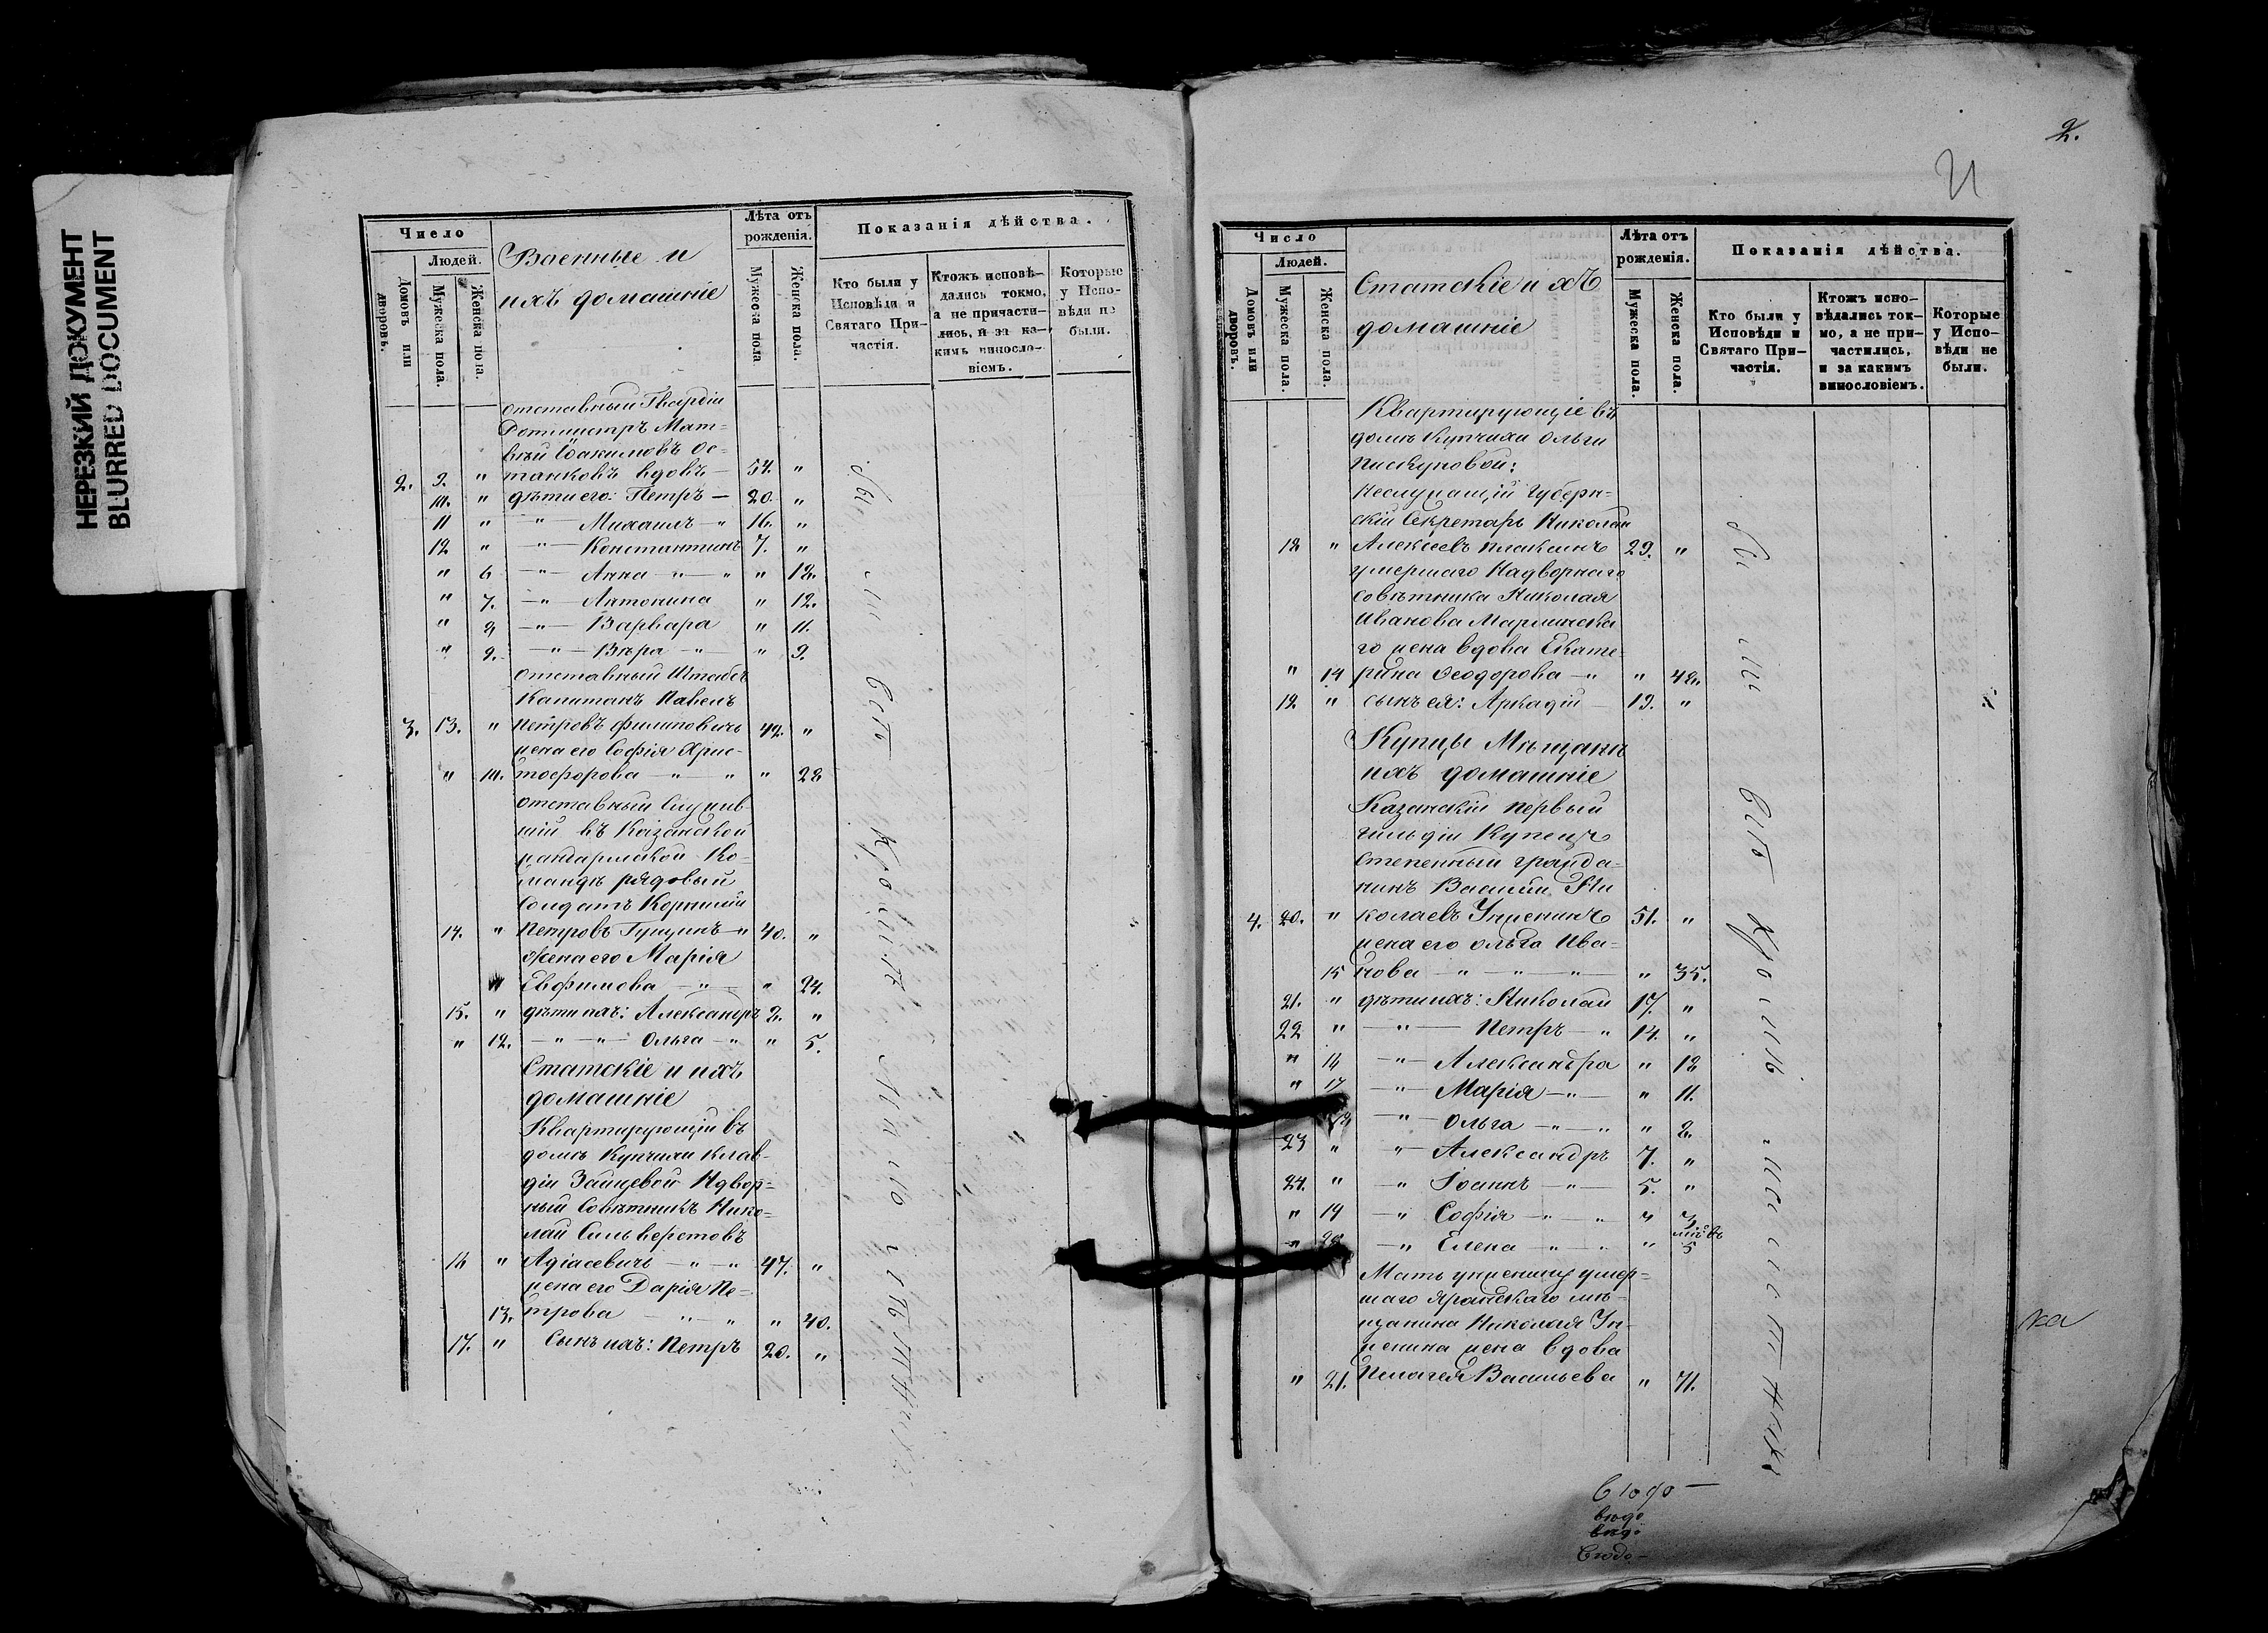 НЕРЕЗКИЙ ДОКУМЕНТ
BLURRED DOCUMENT
Число
Людей.
Домовъ или дворовъ.
Мужеска пола.
Женска пола.
Военные и
ихъ домашніе
Лѣта отъ рожденія.
Мужеска пола
Женска пола.
Показанія дѣйства.
Кто были у Исповѣди и Святаго При-частія.
Ктожъ исповѣ-дались токмо, а не причасти-лись, и за ка-кимъ винослo-віемъ.
Которые у Испо-вѣди не были.
отставный Гвардіи
Ротмистръ Мат-
вѣй Іоакимовъ Ос-
2. 9. " танковъ вдовъ — 54. "
10. " дѣти его: Петръ — 20. "
11 " " — Михаилъ — " 16. "
12 " — " — Константинъ 7. "
" 6 — " — Анна — " — " " 12.
" 7. — " — Антонина " 12.
" 8 — " — Варвара " 11.
" 9. — " — Вѣра — " — " 9.
отставный Штабсъ
Капитанъ Павелъ
3. 13. " Петровъ Филиповичъ 42. "
жена его Софія Хрис-
" 10. тофорова — " — " " 28
отставный Служив
шій въ Казанской
жандармской Ко-
мандѣ рядовый
Солдатъ Корнилій
14. " Петровъ Гущинъ — " 40. "
жена его Марія
Евфимова — " — " 24.
15. " дѣти ихъ: Александръ 2. "
" 12. — " — " — Ольга — " " 5.
Статскіе и ихъ
домашніе
Квартирующій въ
домѣ Купчихи Клав-
діи Зайцевой Ндвор=
ный Совѣтникъ Нико=
лай Сильверстовъ
16 " Адіасевичь — " — " 47. "
жена его Дарія Пе-
13. трова — " — " " 40.
17. " Сынъ ихъ: Петръ 20. "
2.
21
Число
Людей.
Домовъ или дворовъ.
Мужеска пола.
Женска пола.
Статскіе и ихъ
домашніе
Лѣта отъ рожденія.
Мужеска пола.
Женска пола.
Показанія дѣйства.
Кто были у Исповѣди и Святаго При-частія.
Ктожъ испо-вѣдались ток-мо, а не при-частились, и за какимъ винословіемъ.
Которые у Испо-вѣди не были.
Квартирующіе въ
домѣ Купчихи Ольги
Пискуновой:
неслужащій Губерн=
скій Секретарь Николай
18 " Алексѣевъ Плаксинъ 29. "
умершаго Надворнаго
совѣтника Николая
Иванова
го жена вдова Екате=
" 14 рина Ѳеодорова — " " 42.
19. " сынъ ея: Аркадій — 19. "
Купцы Мѣщане
ихъ домашніе
Казанскій первый
гильдіи Купецъ
Степенный гражда-
нинъ Василій Ни
4. 20. " колаевъ Унженинъ 51. "
жена его Ольга Ива-
15 нова — " — " — " — " 35.
21. " дѣти ихъ: Николай 17. "
22 " — " — Петръ — " 14. "
" 16 — " — Александра " 12
" 17 — " — Марія — " — " 11.
18 — " — Ольга — " — " " 8.
23 " — " — Александръ 7. "
24. " — " Іоаннъ — " — 5. "
" 19 — " Софія — " — " " 3.
" 20 — " Елена — " — " " 5
Мать Унженину умер=
шаго Яранскаго мѣ-
щанина Николая Ун-
женина жена вдова
" 21. Пелагея Васильева " 71.
сюдо —